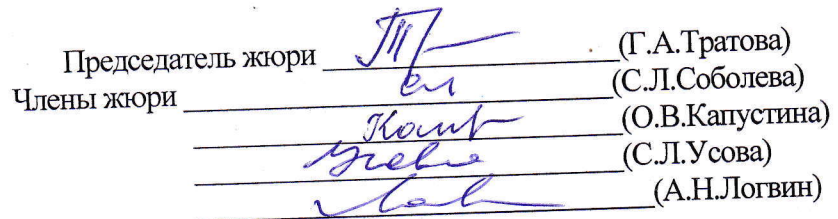 Председатель жюри (Г.А.Тратова)
Члены жюри (С.Л.Соболева)
(О.В.Капустина)
(С.Л.Усова)
(А.Н.Логвин)